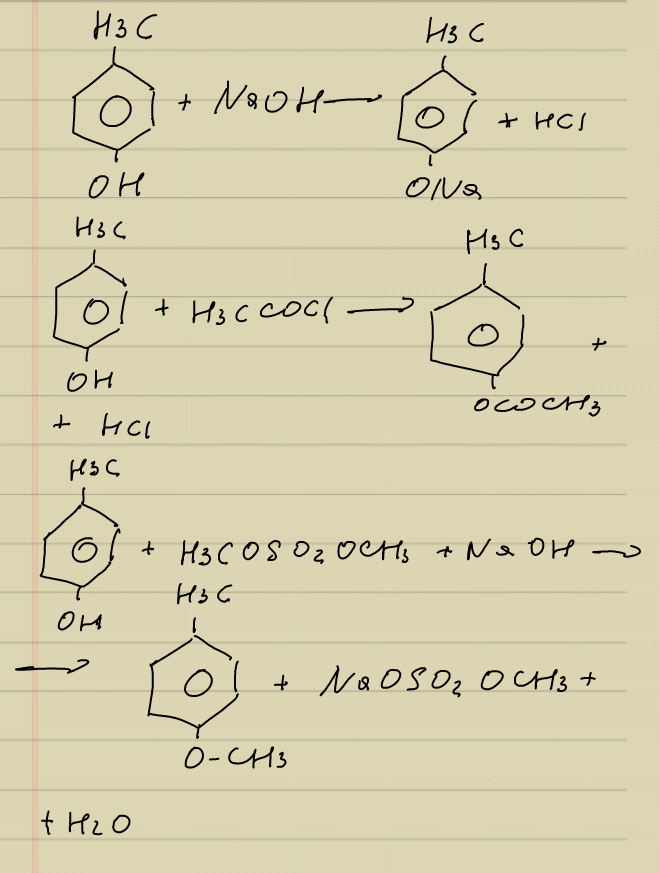 H3C H3C
+ NaOH → + HCl
OH ONa
H3C H3C
+ H3CCOCl → +
OH OCOCH3
+ HCl
H3C
+ H3COSO2OCH3 + NaOH →
OH H3C
→ + NaOSO2OCH3 +
O-CH3
+ H2O